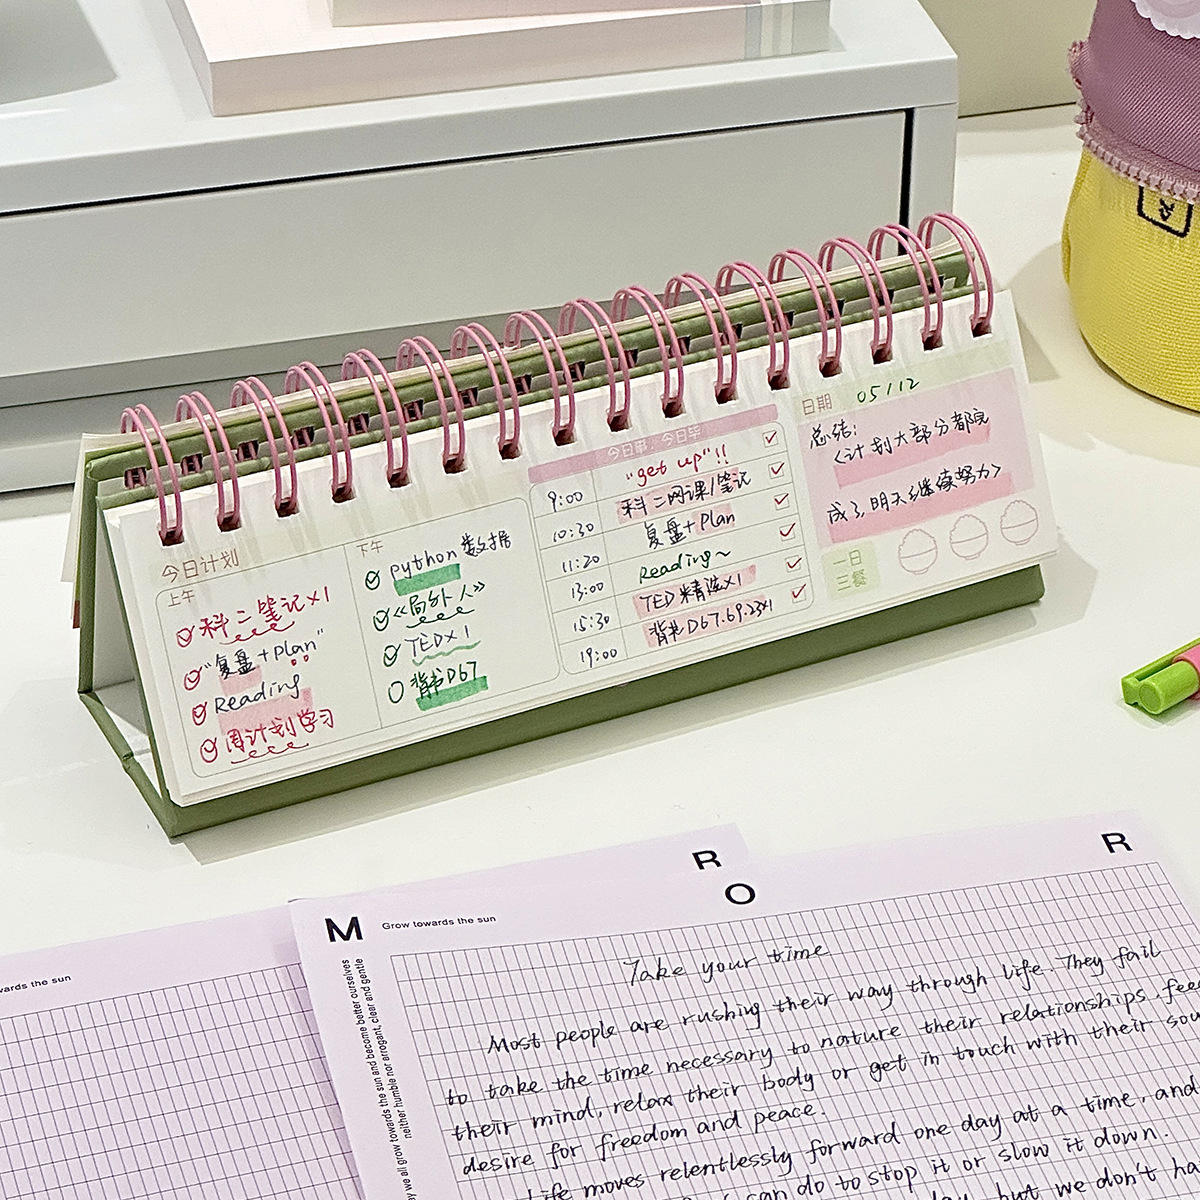 今日计划
上午
科二笔记x1
"复盘+plan"
Reading
周计划学习
下午
python 数据
《局外人》
TEDx1
背书D67
今日事,今日毕
9:00 "get up"!!
10:30 科二网课/笔记
11:20 复盘+Plan
13:00 Reading~
15:30 TED 精选x1
19:00 背书D67.69.23x1
日期 05/12
总结:
<计划大部分都完
成了,明天继续努力>
一日
三餐
wards the sun
M
R
O
R
Grow towards the sun
we all grow towards the sun and become better ourselves
neither humble nor arrogant, clear and gentle
Take your time
Most people are rushing their way through life. They fail
to take the time necessary to nature their relationships. fee
their mind, relax their body or get in touch with their sou
desire for freedom and peace.
Life moves relentlessly forward one day at a time, and
can do to stop it or slow it down.
but we don't ha